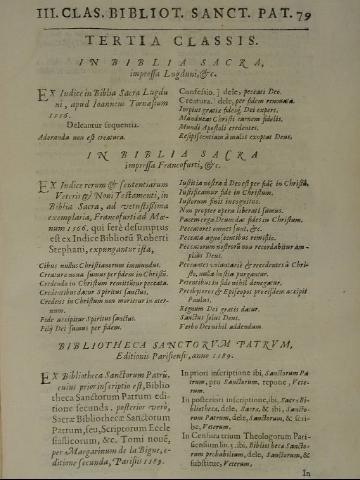 III. CLAS. BIBLIOT. SANCT. PAT. 79
TERTIA CLASSIS.
IN BIBLIA SACRA,
impressa Lugduni, &c.
EX Indice in Biblia Sacra Lugdu
ni, apud Ioannem Tornæsium
1556.
Deleantur sequentia.
Adoranda non est creatura.
Confessio.] dele, peccati Deo.
Creatura. dele, per fidem renouata.
Impius gratiæ fidei Dei expers.
Manducat Christi carnem fidelis.
Mundi Apostoli credentes.
Resipiscentiam à malis exoptat Deus.
IN BIBLIA SACRA
impressa Francofurti, &c.
EX Indice rerum & sententiarum
Veteris & Noui Testamenti, in
Biblia Sacra, ad vetustissima
exemplaria, Francofurti ad Mæ-
num 1566. qui ferè desumptus
est ex Indice Biblioru Roberti
Stephani, expungantur ista,
Cibus nullus Christianorum immundus.
Creatura noua sumus per fidem in Christū.
Credendo in Christum remittūtur peccata.
Credentibus datur Spiritus sanctus.
Credens in Christum non morietur in æter-
num.
Fide accipitur Spiritus sanctus.
Filij Dei sumus per fidem.
Iustitia nostra à Deo est per fidē in Christū.
Iustificamur fide in Christum.
Iustorum finis incognitus.
Non propter opera liberati sumus.
Pacem erga Deum dat fides in Christum.
Peccatores omnes sunt, &c.
Peccata agnoscentibus remissio.
Peccatorum nostrorū non recordabitur am-
plius Deus.
Peccantes voluntariè & recedentes à Chri-
sto, nulla hostia purgantur.
Penitentibus fide nihil denegatur.
Presbyteros & Episcopos pro eisdem accipit
Paulus.
Regnum Dei gratis datur.
Sanctus solus Deus.
Verbo Dei nihil addendum.
BIBLIOTHECA SANCTORVM PATRVM,
Editionis Parisiensis, anno 1589.
EX Bibliotheca Sanctorum Patrū,
cuius prior inscriptio est, Biblio
theca Sanctorum Patrum edi-
tione secunda. posterior verò,
Sacræ Bibliothecæ Sanctorum
Patrum, seu, Scriptorum Eccle
siasticorum, &c. Tomi nouē,
per Margarinum de la Bigne, e-
ditione secunda, Parisiis 1589.
In priori inscriptione ibi, Sanctorum Pa-
trum, pro Sanctorum. repone, Vete-
rum.
In posteriori inscriptione, ibi, Sacræ Bi-
bliothecæ, dele, Sacræ, & ibi, Sancto-
rum Patrum, dele, Sanctorum, & scri-
be, Veterum.
In Censura trium Theologorum Pari-
siensium lin. 1. ibi, Bibliotheca Sancto-
rum probabilium, dele, Sanctorum, &
substitue, Veterum.
In